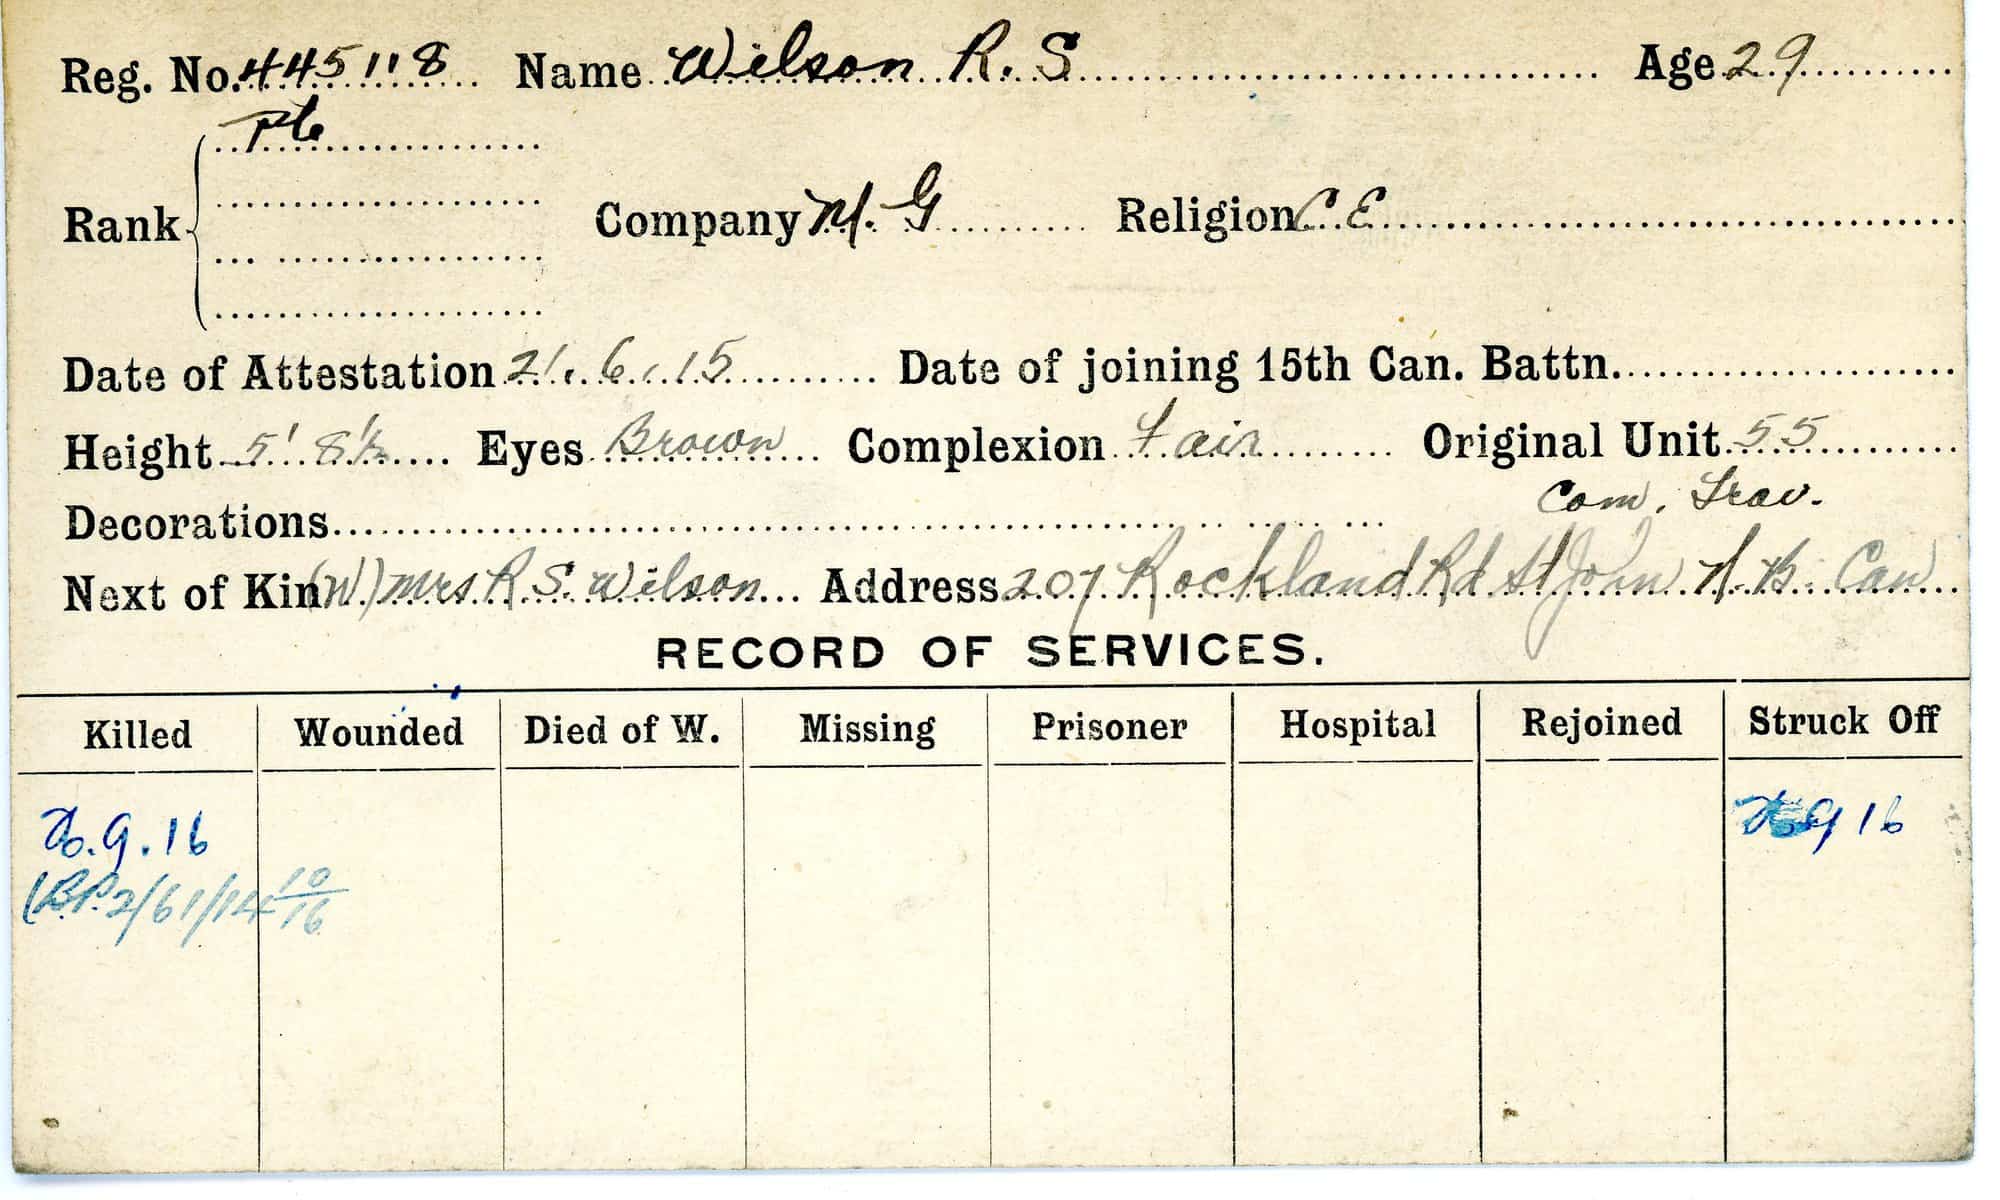 Reg. No. 445118 Name Wilson R. S Age 29
Pte
Rank Company M. G Religion C. E
Date of Attestation 21. 6. 15 Date of joining 15th Can. Battn.
Height 5' 8½ Eyes Brown Complexion Fair Original Unit 55
Com. Trav.
Decorations
Next of Kin (W) Mrs R. S. Wilson Address 207 Rockland Rd St John N. B. Can
RECORD OF SERVICES.
Killed Wounded Died of W. Missing Prisoner Hospital Rejoined Struck Off
26.9.16 9 16
(B.P. 2/61/14 10/16